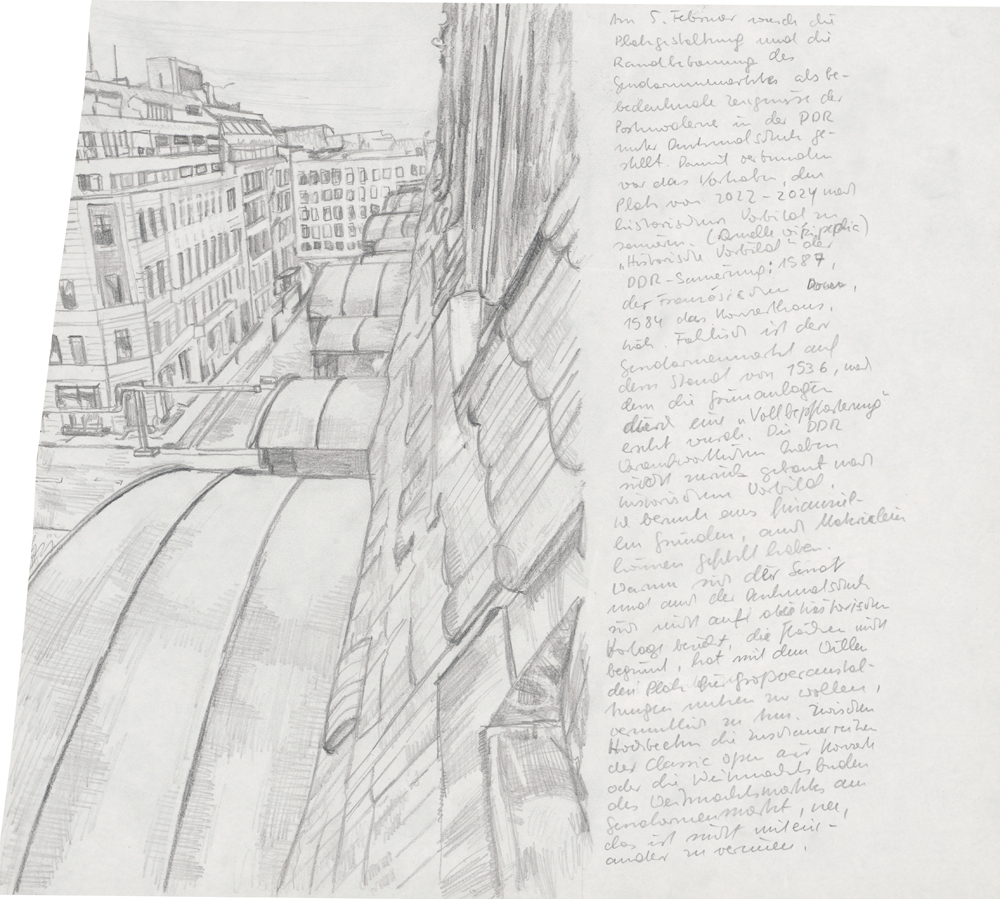 Am 5. Februar wurde die
Platzgestaltung und die
Randbebauung des
Gendarmenmarktes als be-
bedeutende Zeugnisse der
Postmoderne in der DDR
unter Denkmalschutz ge-
stellt. Damit verbunden
war das Vorhaben, den
Platz von 2022-2024 nach
historischem Vorbild zu
sanieren. (Quelle wikipedia)
„Historische Vorbild" der
DDR-Sanierung: 1987,
der Französischen Doms,
1984 das Konzerthaus,
Faktisch ist der
Gendarmenmarkt auf
dem Stand von 1936, nach
dem die Grünanlagen
durch eine „Vollbepflasterung"
ersetzt wurde. Die DDR
Verantwortlichen haben
nicht zurück gebaut nach
historischem Vorbild,
es bernuh aus finanziel-
len Gründen, auch Materialien
können gefehlt haben.
Warum sich der Senat
und auch der Denkmalschutz
sich nicht auf die historische
Vorlage bezieht, die Flächen nicht
begrünt, hat mit dem Willen
den Platz für Großveranstal-
tungen nutzen zu wollen,
vermutlich zu tun. Zwischen
Hochbeeten die Zuschauerreihen
der Classic Open Air Konzerte
oder die Weihnachtsbuden
des Weihnachtsmarktes am
Gendarmenmarkt, nee,
das ist nicht mitein-
ander zu vereinen.